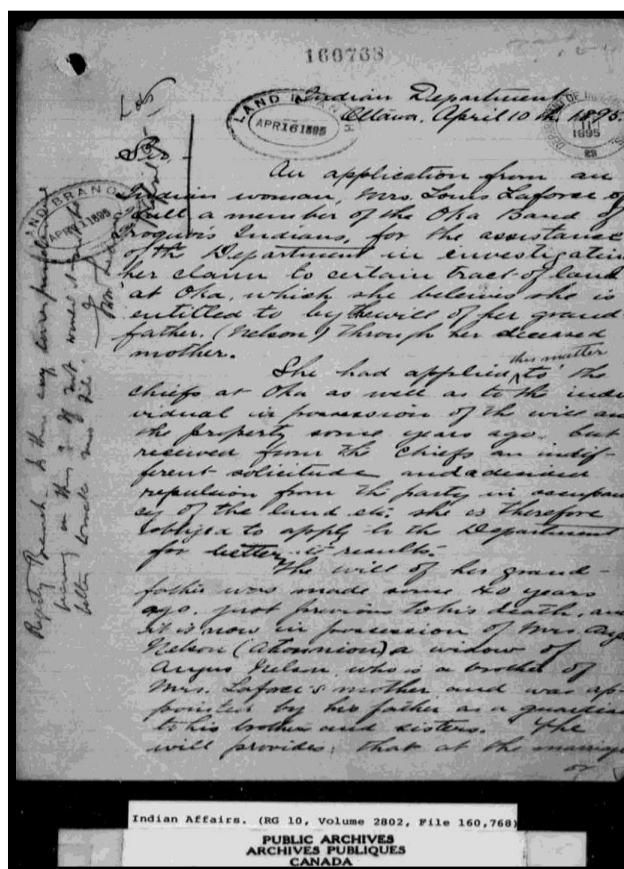 160768
Indian Department
Ottawa, April 10th 1895.
LAND BRANCH
APR 16 1895
1895
Sir,
An application from an
Indian woman, Mrs. Louis Laforce of
a member of the Oka Band of
Iroquois Indians, for the assistance
of the Department in investigating
her claim to certain tract of land
at Oka, which she beleives she is
entitled to by the will of her grand
father. (Nelson) through her deceased
mother.
She had applied this matter to the
chiefs at Oka as well as to the indi
vidual in possession of the will and
the property some years ago, but
received from the chiefs an indif-
ferent solicitude and a denied
repulsion from the party in occupan
cy of the land etc. she is therefore
obliged to apply to the Department
for better results.
The will of her grand-
father was made some 40 years
ago, just previous to his death, and
it is now in possession of Mrs. Ang
Nelson a widow of
Angus Nelson who is a brother of
Mrs. Laforce's mother and was ap-
pointed by his father as a guardian
to his brothers and sisters. The
will provides, that at the marriage
or
LAND BRANCH
Is there any
this
Indian Affairs. (RG 10, Volume 2802, File 160,768)
PUBLIC ARCHIVES
ARCHIVES PUBLIQUES
CANADA